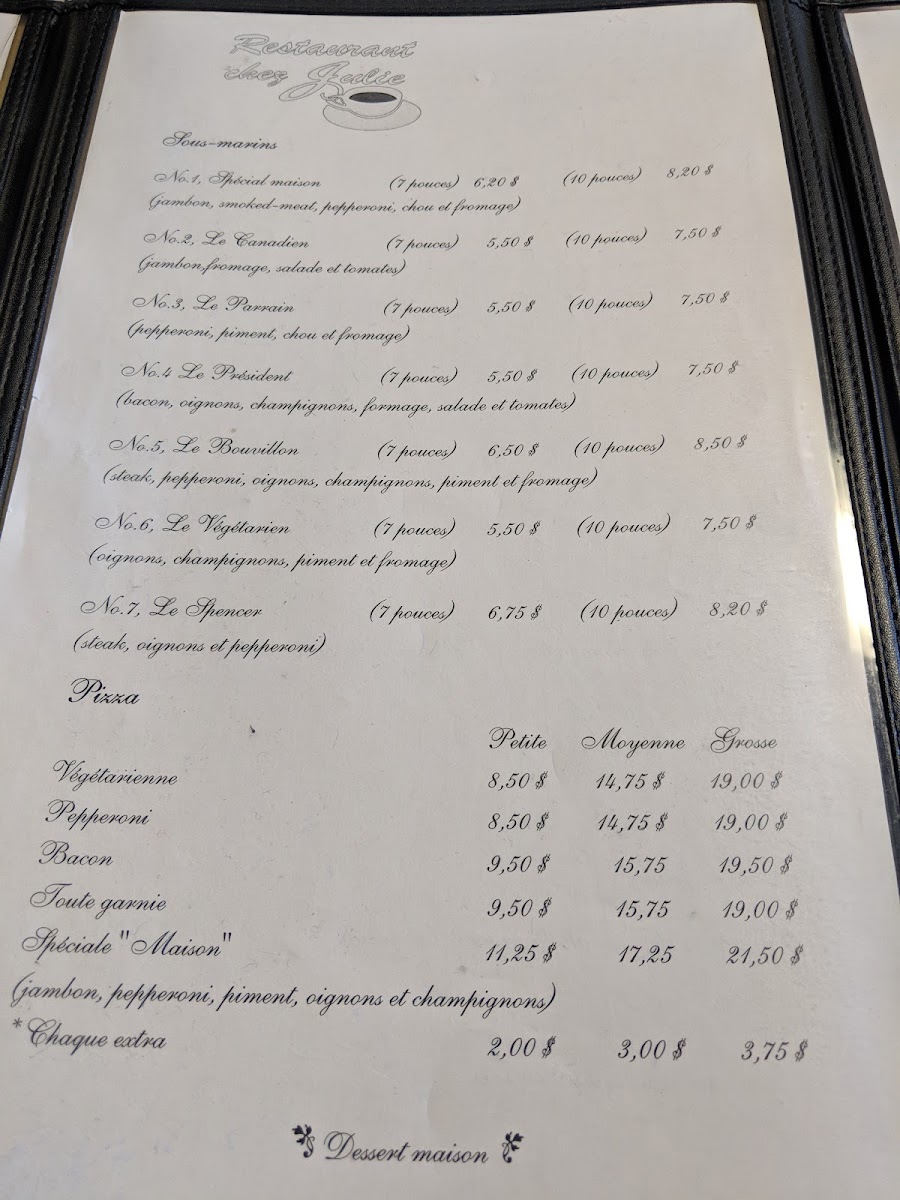 Restaurant
chez Julie
Sous-marins
No.1, Spécial maison (7 pouces) 6,20 $ (10 pouces) 8,20 $
(jambon, smoked-meat, pepperoni, chou et fromage)
No.2, Le Canadien (7 pouces) 5,50 $ (10 pouces) 7,50 $
(jambon,fromage, salade et tomates)
No.3, Le Parrain (7 pouces) 5,50 $ (10 pouces) 7,50 $
(pepperoni, piment, chou et fromage)
No.4 Le Président (7 pouces) 5,50 $ (10 pouces) 7,50 $
(bacon, oignons, champignons, formage, salade et tomates)
No.5, Le Bouvillon (7 pouces) 6,50 $ (10 pouces) 8,50 $
(steak, pepperoni, oignons, champignons, piment et fromage)
No.6, Le Végétarien (7 pouces) 5,50 $ (10 pouces) 7,50 $
(oignons, champignons, piment et fromage)
No.7, Le Spencer (7 pouces) 6,75 $ (10 pouces) 8,20 $
(steak, oignons et pepperoni)
Pizza
Petite Moyenne Grosse
Végétarienne 8,50 $ 14,75 $ 19,00 $
Pepperoni 8,50 $ 14,75 $ 19,00 $
Bacon 9,50 $ 15,75 19,50 $
Toute garnie 9,50 $ 15,75 19,00 $
Spéciale "Maison" 11,25 $ 17,25 21,50 $
(jambon, pepperoni, piment, oignons et champignons)
*Chaque extra 2,00 $ 3,00 $ 3,75 $
Dessert maison